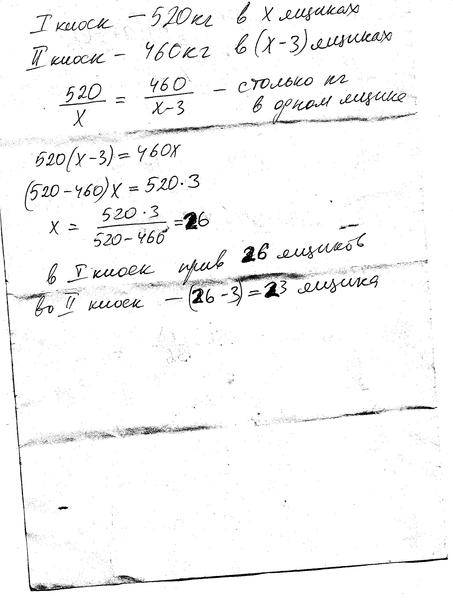 I киоск – 520 кг в x ящиках
II киоск – 460 кг в (x-3) ящиках
520/x = 460/x-3 – столько кг
в одном ящике
520(x-3) = 460x
(520-460)x = 520·3
x = 520·3/520-460 = 26
в I киоск прив 26 ящиков
во II киоск – (26-3) = 23 ящика